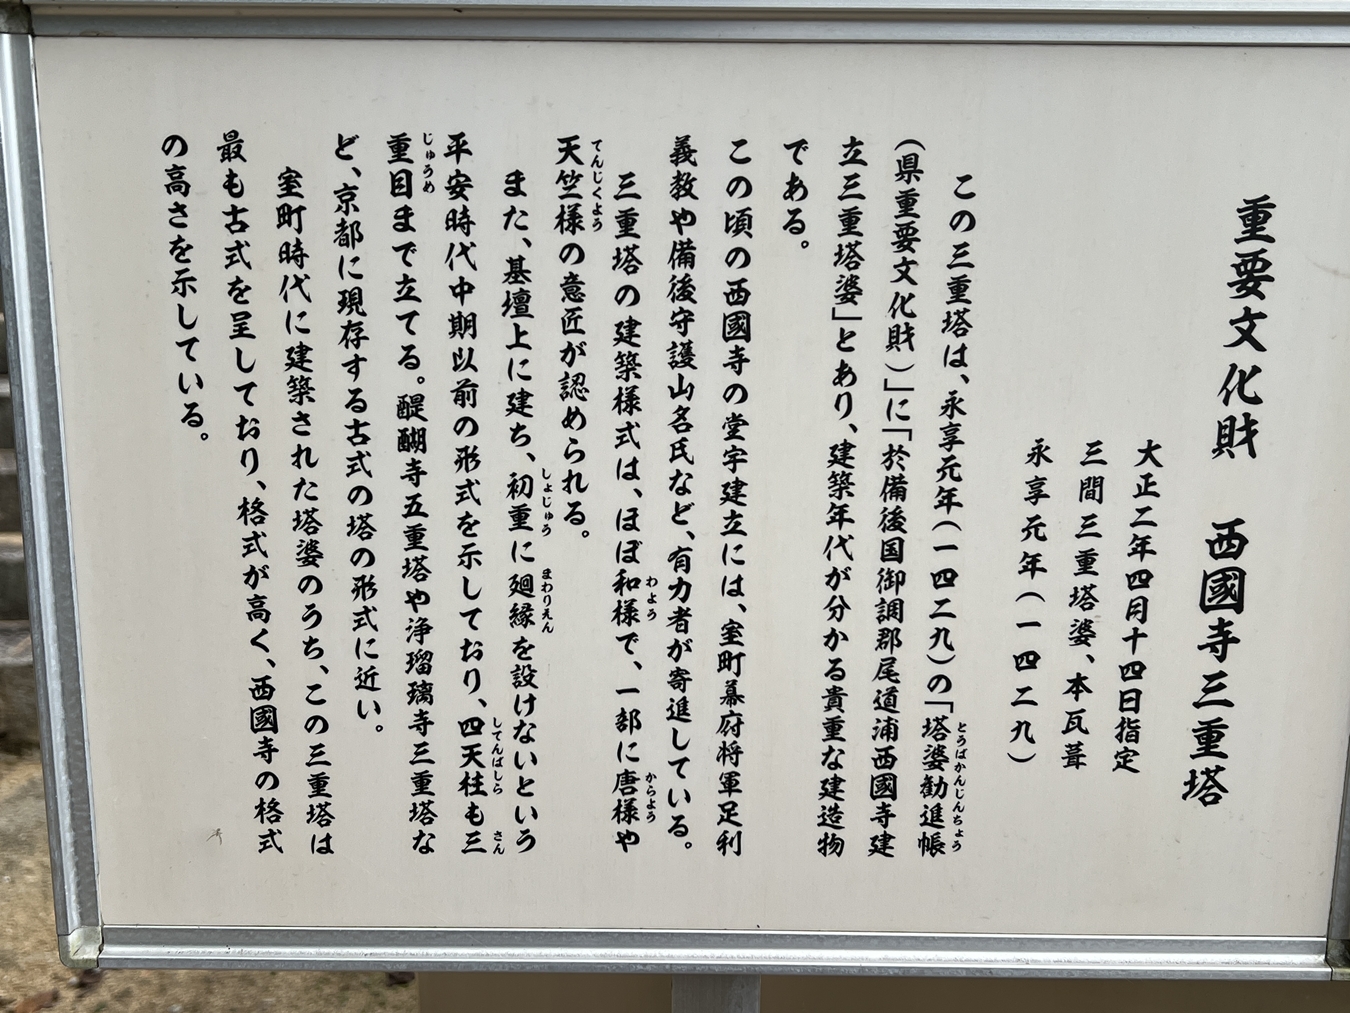 重要文化財　西國寺三重塔
大正二年四月十四日指定
三間三重塔婆、本瓦葺
永享元年(一四二九)
この三重塔は、永享元年(一四二九)の「塔婆勧進帳
とうばかんじんちょう
(県重要文化財)」に「於備後国御調郡尾道浦西國寺建
立三重塔婆」とあり、建築年代が分かる貴重な建造物
である。
この頃の西國寺の堂宇建立には、室町幕府将軍足利
義教や備後守護山名氏など、有力者が寄進している。
三重塔の建築様式は、ほぼ和様で、一部に唐様や
わよう　からよう
天竺様の意匠が認められる。
てんじくよう
また、基壇上に建ち、初重に廻縁を設けないという
しょじゅう　まわりえん
平安時代中期以前の形式を示しており、四天柱も三
してんばしら　さん
重目まで立てる。醍醐寺五重塔や浄瑠璃寺三重塔な
じゅうめ
ど、京都に現存する古式の塔の形式に近い。
室町時代に建築された塔婆のうち、この三重塔は
最も古式を呈しており、格式が高く、西國寺の格式
の高さを示している。